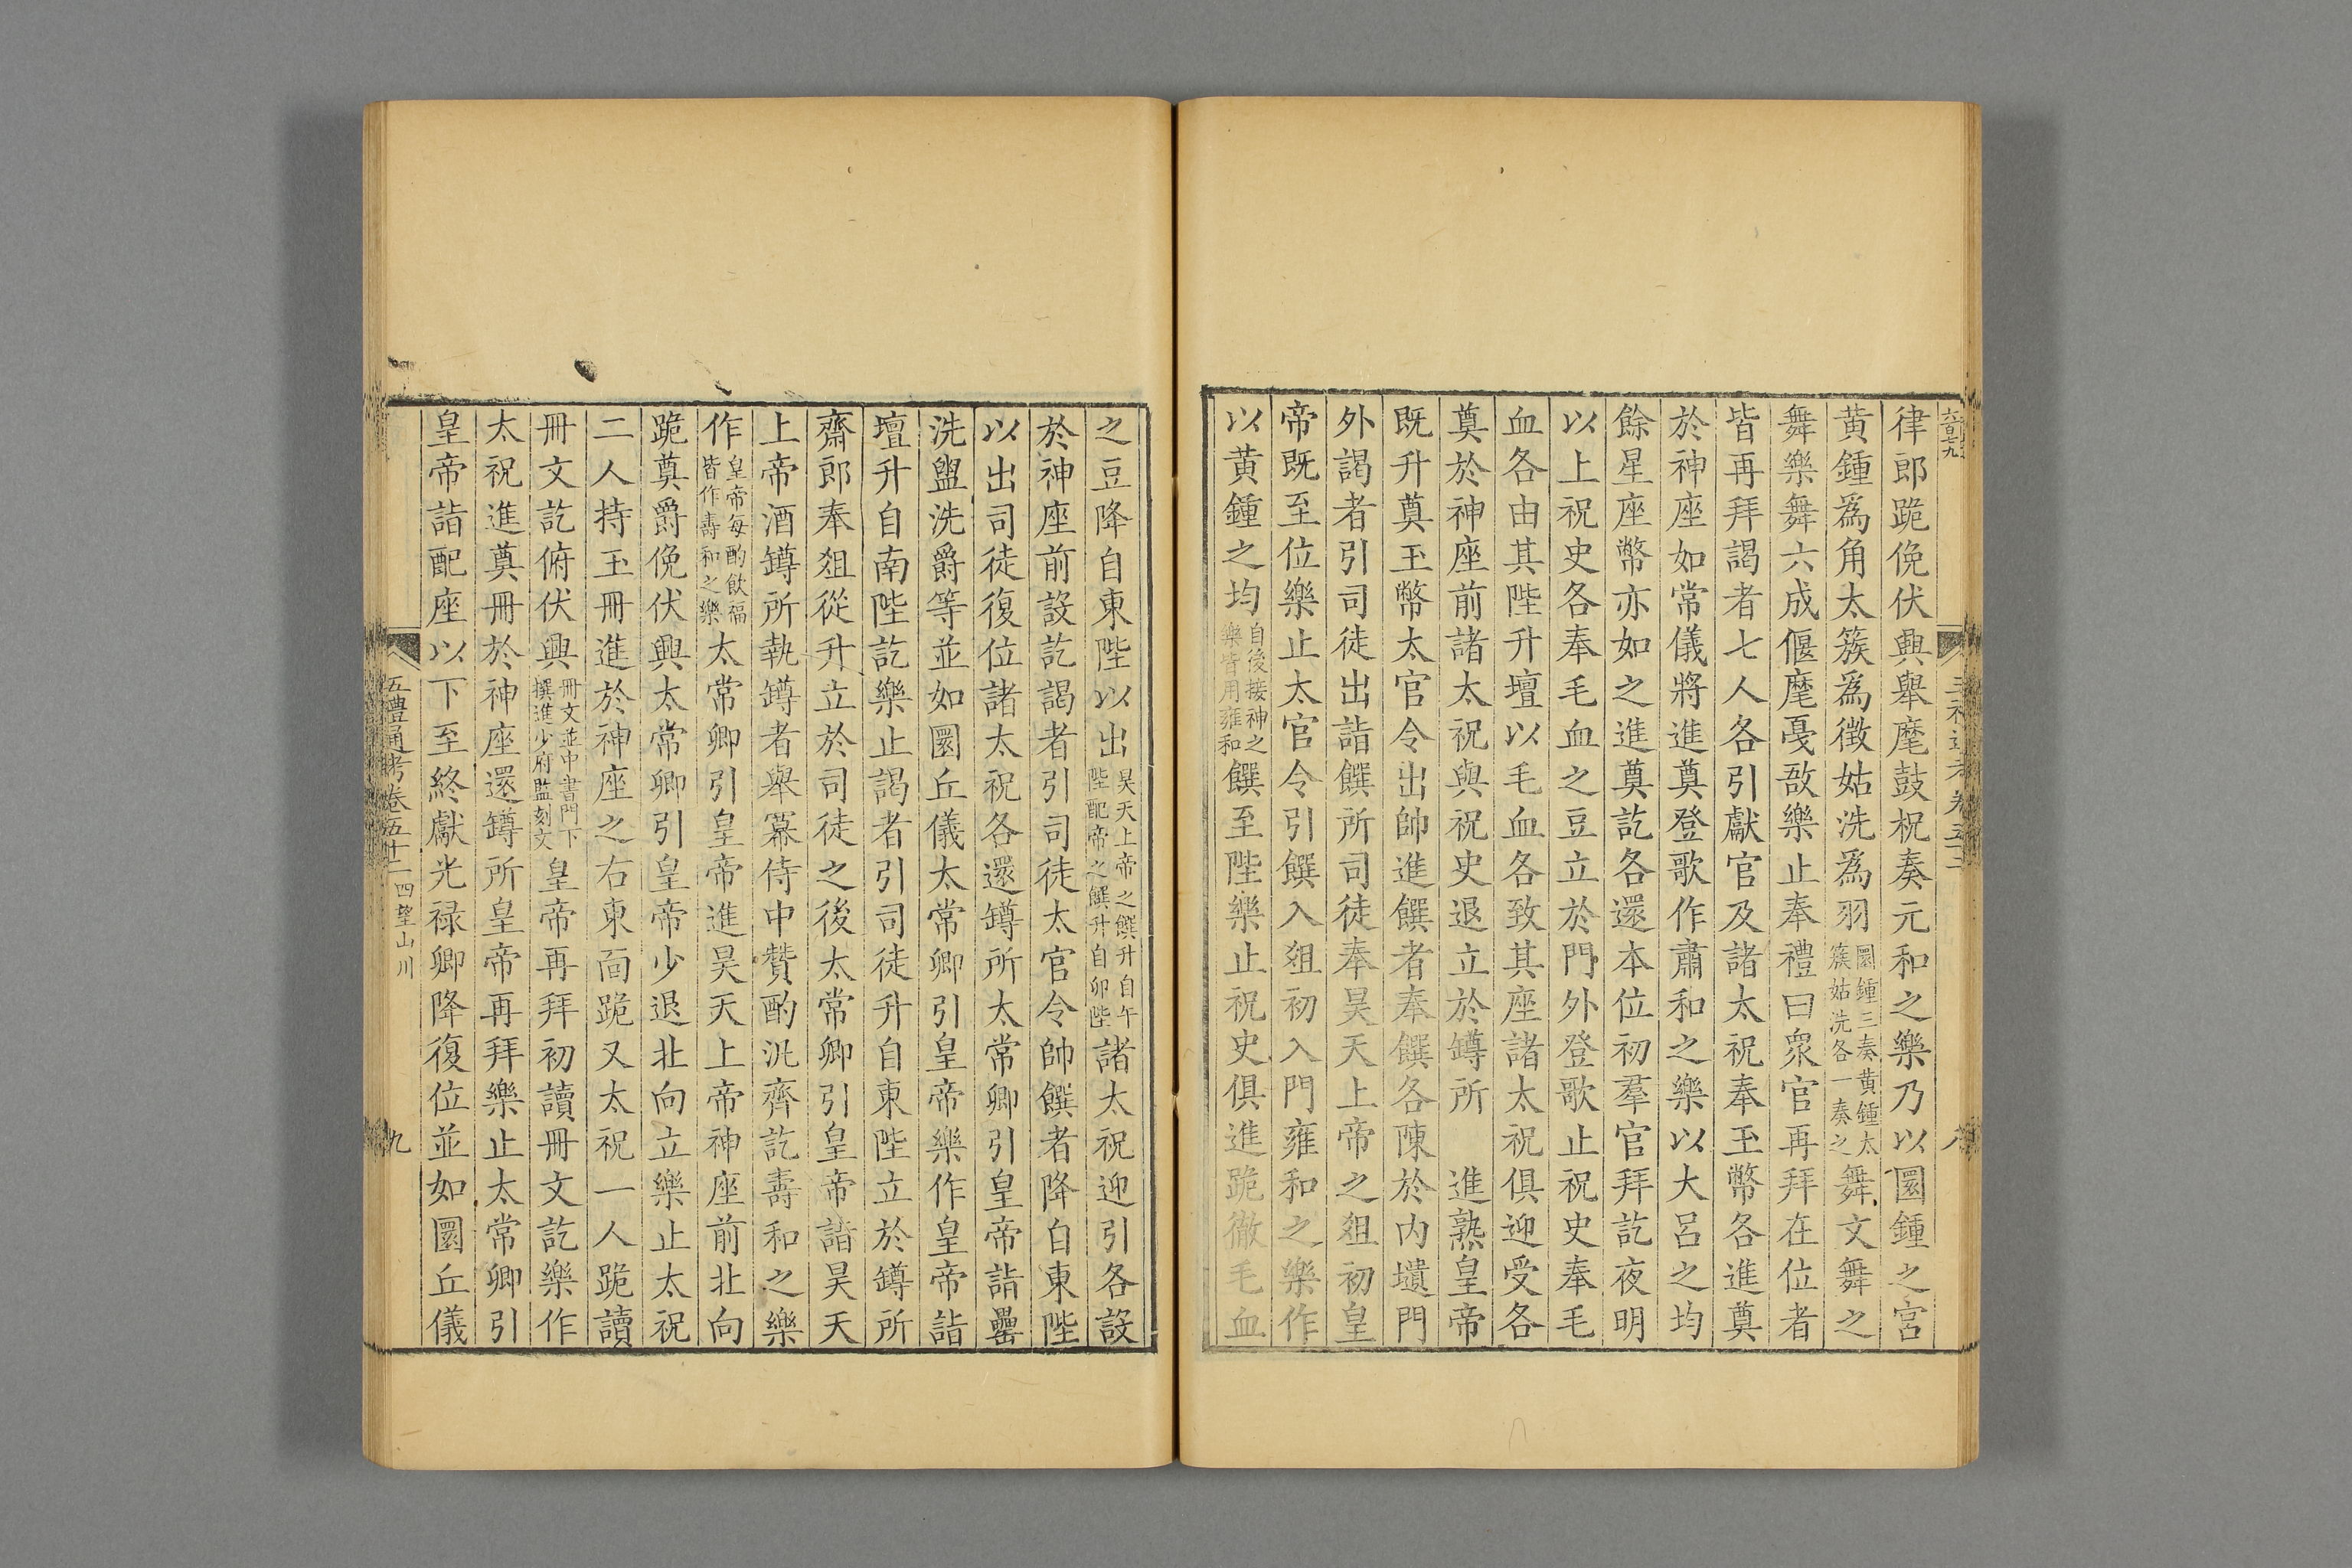 律郎跪俛伏興舉麾鼓柷奏元和之樂乃以圜鍾之宮
黃鍾爲角太簇爲徵姑洗爲羽圜鍾三奏黃鍾太簇姑洗各一奏之舞文舞之
舞樂舞六成偃麾戞敔樂止奉禮曰衆官再拜在位者
皆再拜謁者七人各引獻官及諸太祝奉玉幣各進奠
於神座如常儀將進奠登歌作肅和之樂以大呂之均
餘星座幣亦如之進奠訖各還本位初羣官拜訖夜明
以上祝史各奉毛血之豆立於門外登歌止祝史奉毛
血各由其陛升壇以毛血各致其座諸太祝俱迎受各
奠於神座前諸太祝與祝史退立於罇所　進熟皇帝
既升奠玉幣太官令出帥進饌者奉饌各陳於內壝門
外謁者引司徒出詣饌所司徒奉昊天上帝之俎初皇
帝既至位樂止太官令引饌入俎初入門雍和之樂作
以黃鍾之均自後接神之樂皆用雍和饌至陛樂止祝史俱進跪徹毛血
之豆降自東陛以出昊天上帝之饌升自午陛配帝之饌升自卯陛諸太祝迎引各設
於神座前設訖謁者引司徒太官令帥饌者降自東陛
以出司徒復位諸太祝各還罇所太常卿引皇帝詣罍
洗盥洗爵等並如圜丘儀太常卿引皇帝樂作皇帝詣
壇升自南陛訖樂止謁者引司徒升自東陛立於罇所
齋郎奉俎從升立於司徒之後太常卿引皇帝詣昊天
上帝酒罇所執罇者舉冪侍中贊酌汎齊訖壽和之樂
作皇帝每酌飲福皆作壽和之樂太常卿引皇帝進昊天上帝神座前北向
跪奠爵俛伏興太常卿引皇帝少退北向立樂止太祝
二人持玉冊進於神座之右東面跪又太祝一人跪讀
冊文訖俯伏興冊文並中書門下撰進少府監刻文皇帝再拜初讀冊文訖樂作
太祝進奠冊於神座還罇所皇帝再拜樂止太常卿引
皇帝詣配座以下至終獻光祿卿降復位並如圜丘儀
五禮通考卷五十二四望山川
九